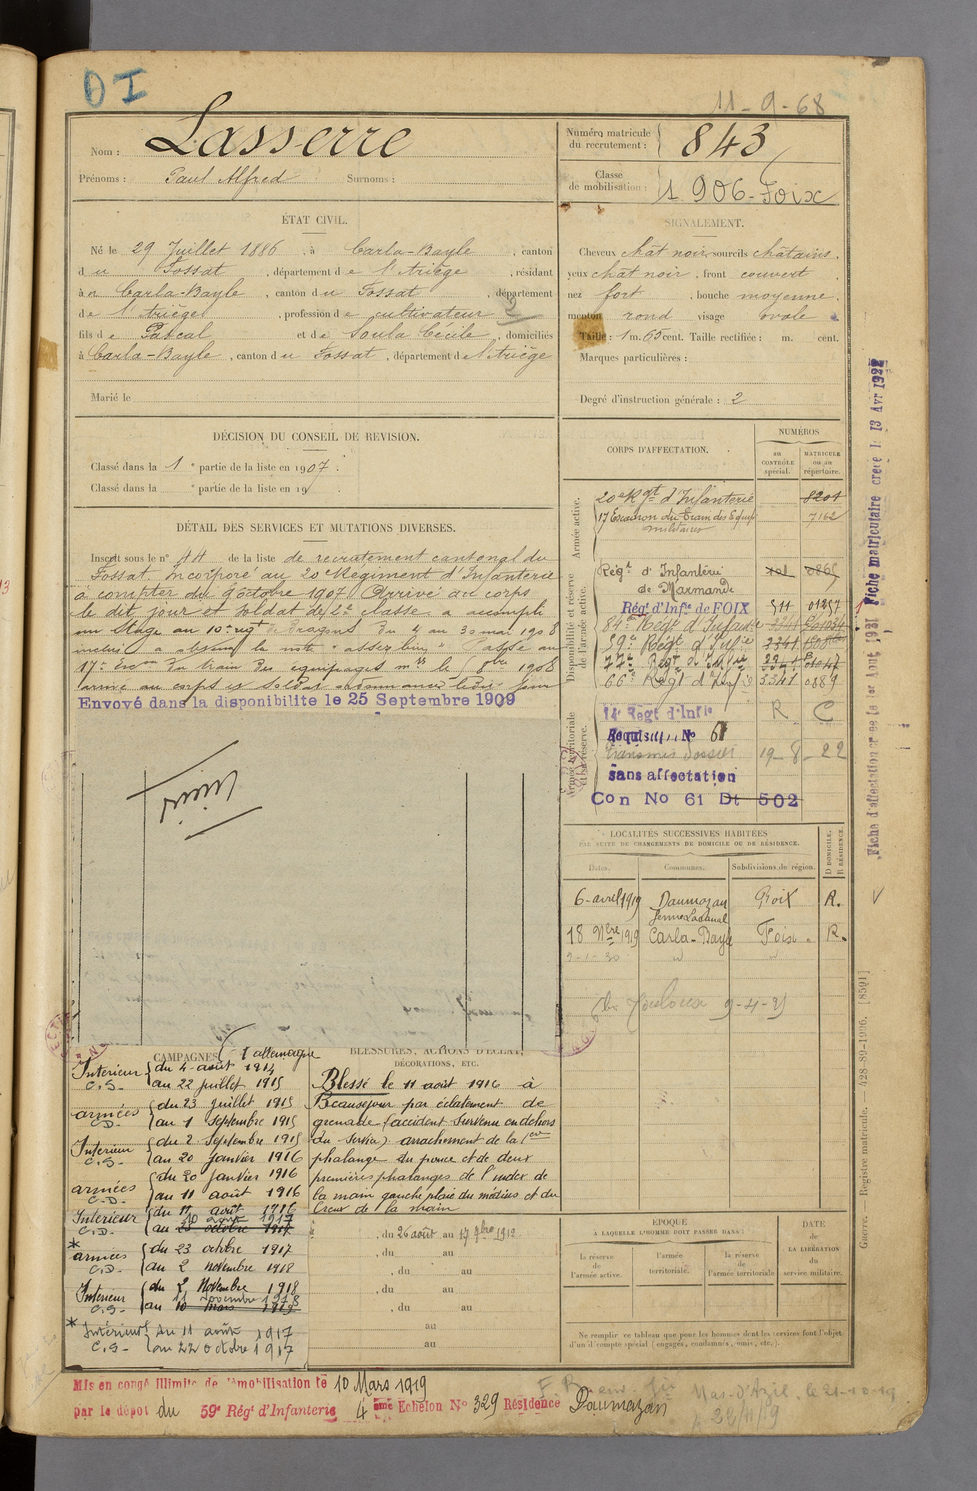 DI
11-9-68
Nom : Lasserre
Prénoms : Paul Alfred Surnoms :
Numéro matricule du recrutement : 843
Classe de mobilisation : 1906-Foix
ÉTAT CIVIL.
Né le 29 Juillet 1886, à Carla-Bayle, canton
du Fossat, département de l'Ariège, résidant
à Carla-Bayle, canton du Fossat, département
de l'Ariège, profession de cultivateur
fils de Pascal et de Soula Cécile, domiciliés
à Carla-Bayle, canton du Fossat, département de l'Ariège
Marié le
SIGNALEMENT.
Cheveux chât noir, sourcils châtains,
yeux chât noir, front couvert,
nez fort, bouche moyenne,
menton rond visage ovale
Taille : 1 m. 65 cent. Taille rectifiée : m. cent.
Marques particulières :
Degré d'instruction générale : 2
DÉCISION DU CONSEIL DE REVISION.
Classé dans la 1e partie de la liste en 1907.
Classé dans la e partie de la liste en 19
DÉTAIL DES SERVICES ET MUTATIONS DIVERSES.
Inscrit sous le n° 44 de la liste de recrutement cantonal du
Fossat. Incorporé au 20e Régiment d'Infanterie
à compter du 9 octobre 1907 Arrivé au corps
le dit jour et soldat de 2e classe. a accompli
un stage au 10e regt de Dragons du 4 au 30 mai 1908
inclus a obtenu la note "assez bien" Passé au
17e Escon du train des équipages mres le 1908
arrivé au corps et soldat ordonnance ledit jour
Envoyé dans la disponibilité le 25 Septembre 1909
CORPS D'AFFECTATION.
NUMÉROS
au CONTRÔLE spécial.
MATRICULE ou au répertoire.
Armée active.
20e Rgt d'Infanterie 8201
17 Escadron du Train des Equip militaires 7162
Disponibilité et réserve de l'armée active.
Regt d'Infanterie
de Marmande
Régt d'Infie de FOIX 511 01257
84e Régt d'Infanterie
59e Régt d'Infie 2341
77e Régt d'Infie
66e Régt d'Infie 3341 0189
Armée territoriale et sa réserve.
14e Régt d'Infie R C
Requisition No 61
Transmis Dossier 19-8-22
sans affectation
Con No 61 Dt 502
Fiche d'affectation créée le 1er Aout 1931 Fiche matriculaire créée le 13 Avr 1922
LOCALITÉS SUCCESSIVES HABITÉES
PAR SUITE DE CHANGEMENTS DE DOMICILE OU DE RÉSIDENCE.
Dates. Communes. Subdivisions de région. D DOMICILE. R RÉSIDENCE.
6-avril 1919 Daumazan Foix R.
18 9bre 1919 Carla-Bayle Foix. R.
Toulouse 9-4-31
CAMPAGNES
Allemagne
Intérieur C.S. du 4-août 1914
au 22 juillet 1915
armées C.D. du 23 juillet 1915
au 1 Septembre 1915
Intérieur C.S. du 2 Septembre 1915
au 20 janvier 1916
armées C.D. du 20 janvier 1916
au 11 août 1916
Intérieur C.D. du 11 août 1916
au 23 octobre 1917
* armées C.D. du 23 octobre 1917
au 2 novembre 1918
Intérieur C.S. du 2 Novembre 1918
au 10 mars 1919
* Intérieur C.S. du 11 août 1917
au 22 octobre 1917
BLESSURES, ACTIONS D'ÉCLAT,
DÉCORATIONS, ETC.
Blessé le 11 août 1916 à
Beauséjour par éclatement de
grenade (accident survenu en dehors
du service) arrachement de la 1ere
phalange du pouce et de deux
premières phalanges de l'index de
la main gauche plaie du médius et du
creux de la main
, du 26 août au 17 7bre 1912
, du au
, du au
, du au
, du au
au
au
EPOQUE
À LAQUELLE L'HOMME DOIT PASSER DANS :
la réserve de l'armée active.
l'armée territoriale.
la réserve de l'armée territoriale
DATE de LA LIBÉRATION du service militaire.
Ne remplir ce tableau que pour les hommes dont les services font l'objet
d'un décompte spécial (engagés, condamnés, omis, etc.).
Guerre. — Registre matricule. — 428-89-1906. [8591]
Mis en congé illimité de démobilisation le 10 Mars 1919
par le dépôt du 59e Régt d'Infanterie 4ème Echelon No 329 Résidence Daumazan
Mas-d'Azil, le 21-10-19
22/11/19